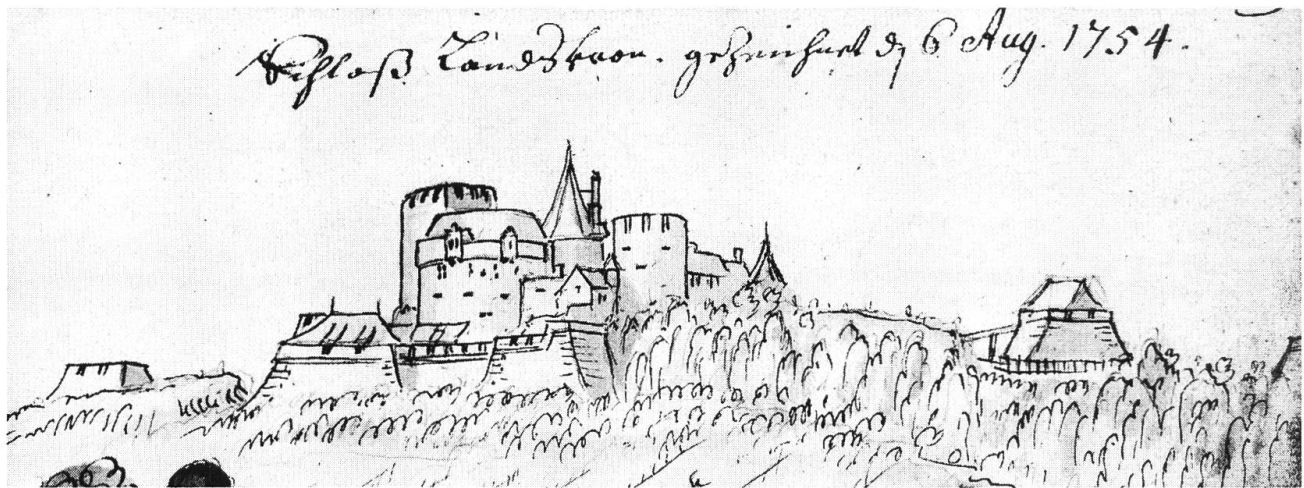 Schloß Landskron. gezeichnet dȷ 6 Aug. 1754.